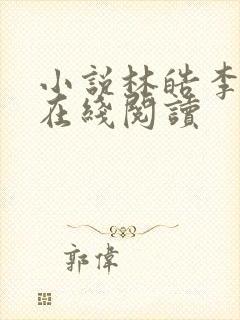 小說林皓李
在綫閱讀
郭偉